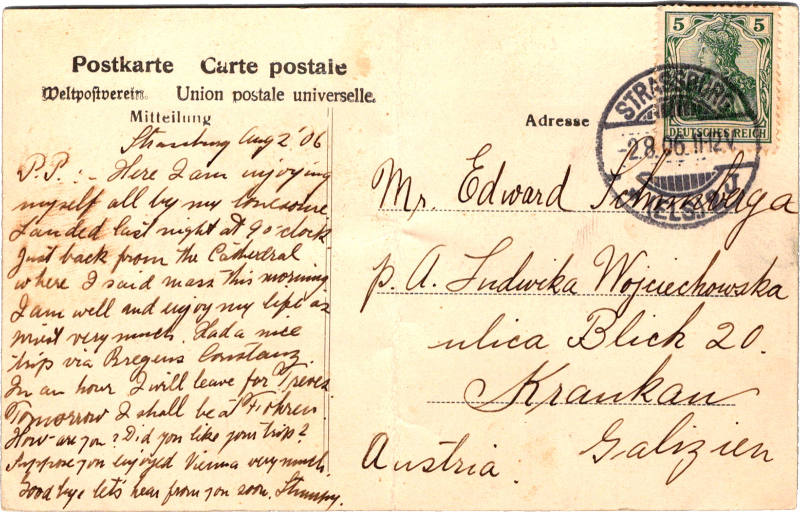 Postkarte Carte postale
Weltpostverein Union postale universelle.
Mitteilung
Adresse
5 5
DEUTSCHES REICH
STRASSBURG
-2.8.06. 11-12 V.
(ELS.)
Strassburg Aug 2' 06
P.P.:- Here I am enjoying
myself all by my lonesome
Landed last night at 9 o'clock
Just back from the Cathedral
where I said mass this morning
I am well and enjoy my life as
very much. Had a nice
trip via Bregens Constanz.
In an hour I will leave for Treves
Tomorrow I shall be at Föhren
How are you? Did you like your trip?
Suppose you enjoyed Vienna very much.
Good bye let's hear from you soon. Stumpy.
Mr. Edward
p. A. Ludwika Wojciechowska
ulica Blich 20.
Krankau
Galizien
Austria.